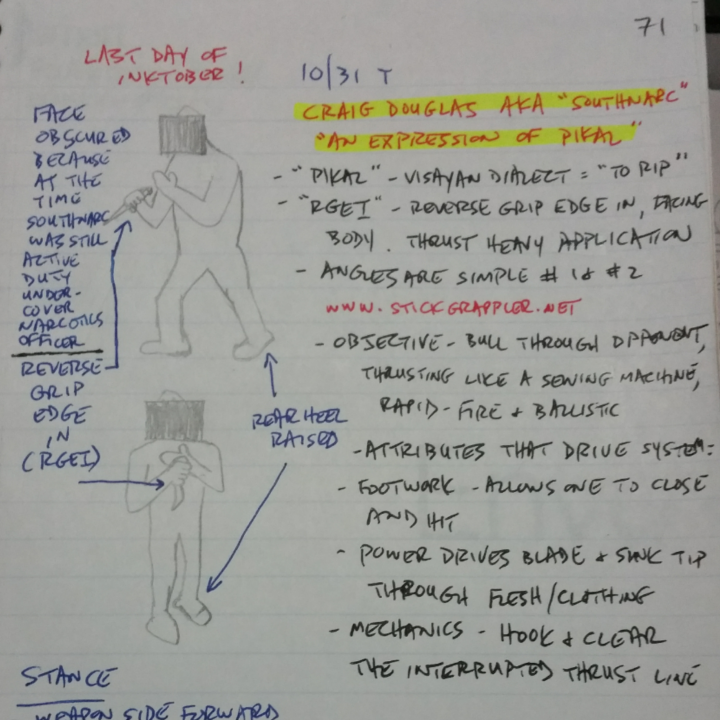 71
LAST DAY OF
INKTOBER!
FACE
OBSCURED
BECAUSE
AT THE
TIME
SOUTHNARC
WAS STILL
ACTIVE
DUTY
UNDER-
COVER
NARCOTICS
OFFICER
REVERSE
GRIP
EDGE
IN
(RGEI)
REAR HEEL
RAISED
STANCE
WEAPON SIDE FORWARD
10/31 T
CRAIG DOUGLAS AKA "SOUTHNARC"
"AN EXPRESSION OF PIKAL"
- "PIKAL" - VISAYAN DIALECT = "TO RIP"
- "RGEI" - REVERSE GRIP EDGE IN, FACING
BODY. THRUST HEAVY APPLICATION
- ANGLES ARE SIMPLE # 1 & # 2
WWW.STICKGRAPPLER.NET
- OBJECTIVE - BULL THROUGH OPPONENT,
THRUSTING LIKE A SEWING MACHINE,
RAPID-FIRE & BALLISTIC
- ATTRIBUTES THAT DRIVE SYSTEM:
- FOOTWORK - ALLOWS ONE TO CLOSE
AND HIT
- POWER DRIVES BLADE & SINK TIP
THROUGH FLESH/CLOTHING
- MECHANICS - HOOK & CLEAR
THE INTERRUPTED THRUST LINE